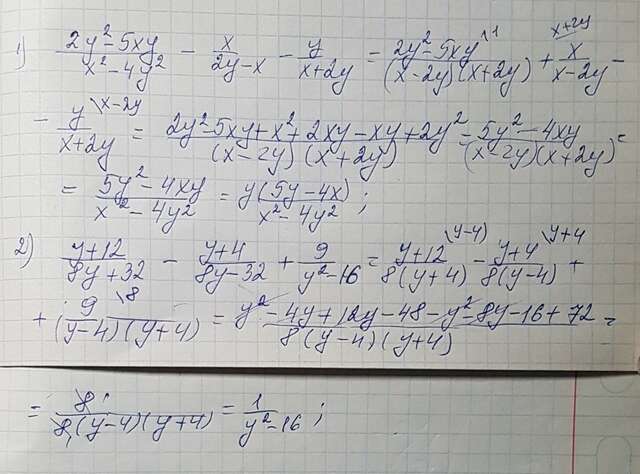 1) (2y²-5xy)/(x²-4y²) - x/(2y-x) - y/(x+2y) = (2y²-5xy\1)/((x-2y)(x+2y)) + (x\x+2y)/(x-2y) -
- (y\x-2y)/(x+2y) = (2y²-5xy+x²+2xy-xy+2y²)/((x-2y)(x+2y)) = (5y²-4xy)/((x-2y)(x+2y)) =
= (5y²-4xy)/(x²-4y²) = y(5y-4x)/(x²-4y²);
2) (y+12)/(8y+32) - (y+4)/(8y-32) + 9/(y²-16) = (y+12\(y-4))/(8(y+4)) - (y+4\y+4)/(8(y-4)) +
+ (9\8)/((y-4)(y+4)) = (y²-4y+12y-48-y²-8y-16+72)/(8(y-4)(y+4)) =
= 8¹/(8₁(y-4)(y+4)) = 1/(y²-16);